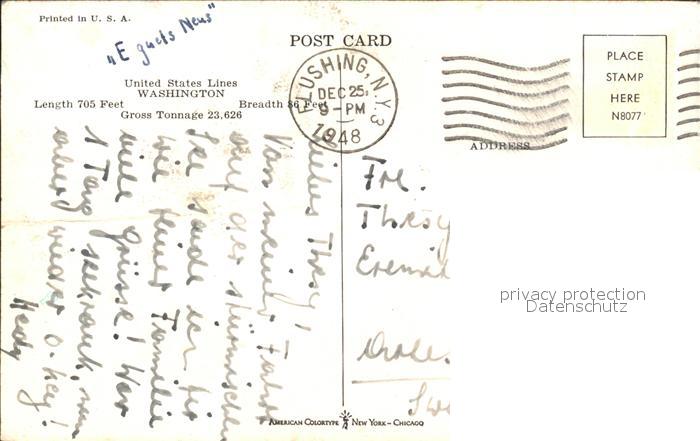 Printed in U. S. A.
"E guets Neus"
POST CARD
United States Lines
WASHINGTON
Length 705 Feet Breadth 86 Feet
Gross Tonnage 23,626
FLUSHING, N.Y. 3
DEC 25
9-PM
1948
PLACE
STAMP
HERE
N8077
ADDRESS
Liebes Thesy!
Von meiner Fahrt
auf der stürmischen
See sende ich Dir
wie Deiner Familie
viele Grüsse! War
1 Tag seekrank, nun
aber wieder o. key!
Hedy
Frl.
Thesy
privacy protection
Datenschutz
AMERICAN COLORTYPE NEW YORK - CHICAGO